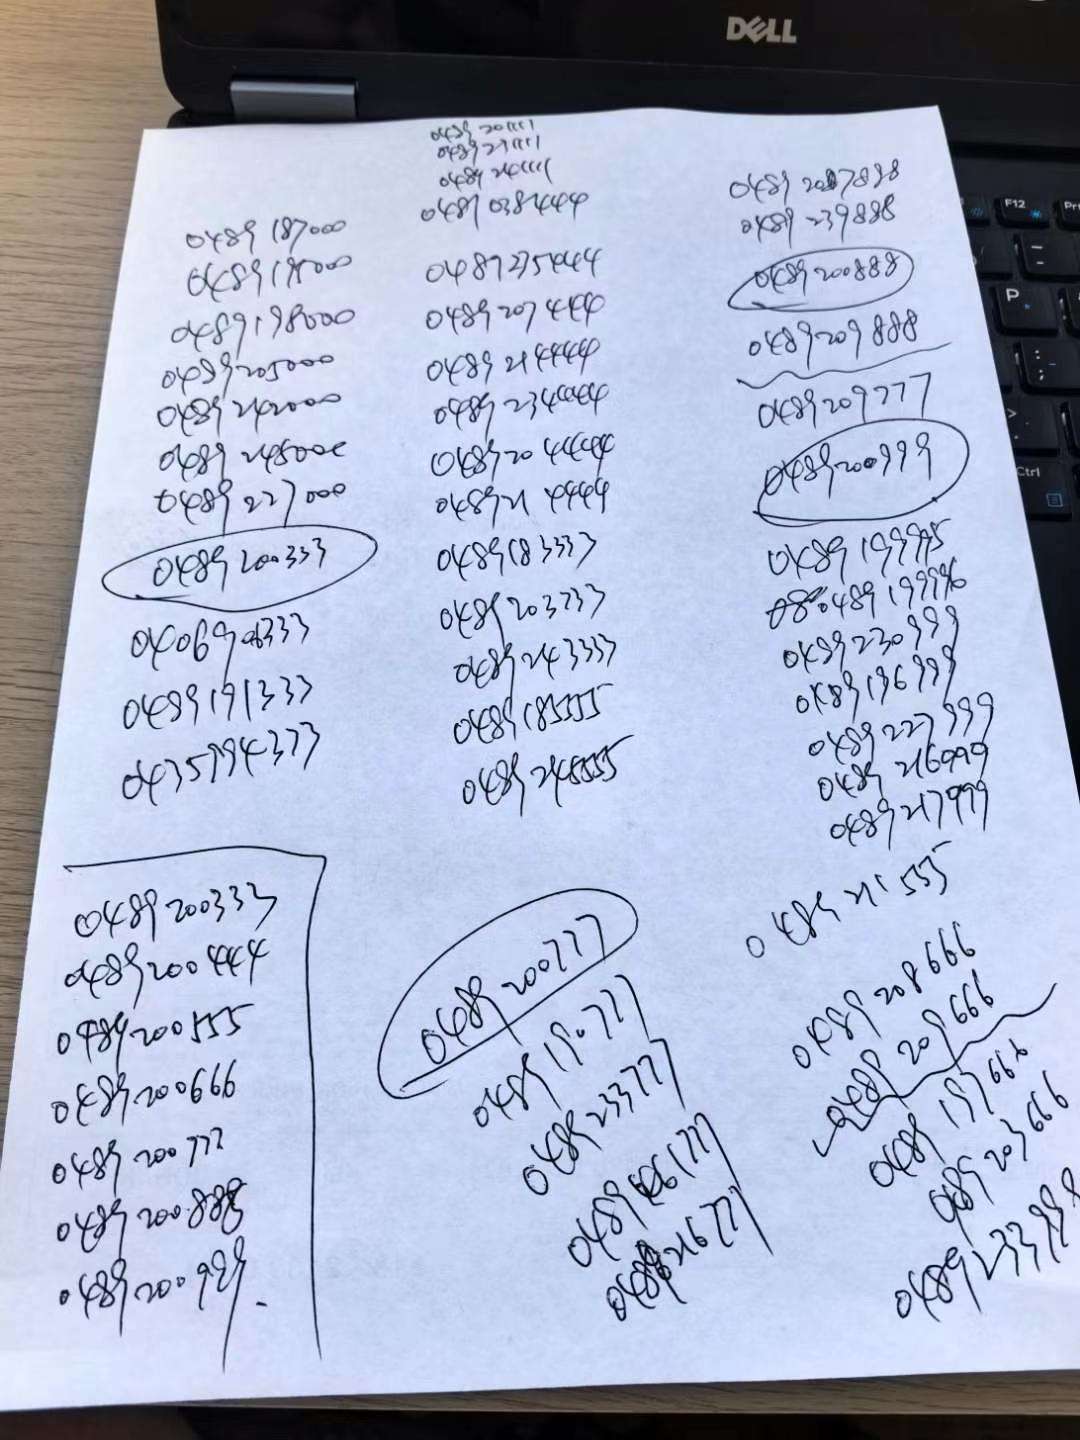 DELL
F12
Prt
P
Ctrl
0489 201111
0489 271111
0489 241111
0489 187000
0489 195000
0489 198000
0489 205000
0489 242000
0489 245000
0489 227000
0489 200333
0489 191333
0435994373
0489 235444
0489 207444
0489 214444
0489 234444
0489 204444
0489 214444
0489 183333
0489 203333
0489 243333
0489 185555
0489 245555
0489 239888
0489 200888
0489 209888
0489 209777
0489 200999
0489 199995
0489 199996
0489 230999
0489 196999
0489 227999
0489 216999
0489 217999
0489 211555
0489 208666
0489 209666
0489 197666
0489 203666
0489 233999
0489 200333
0489 200444
0489 200555
0489 200666
0489 200777
0489 200888
0489 200999.
0489 200777
0489 190777
0489 233777
0489 216777